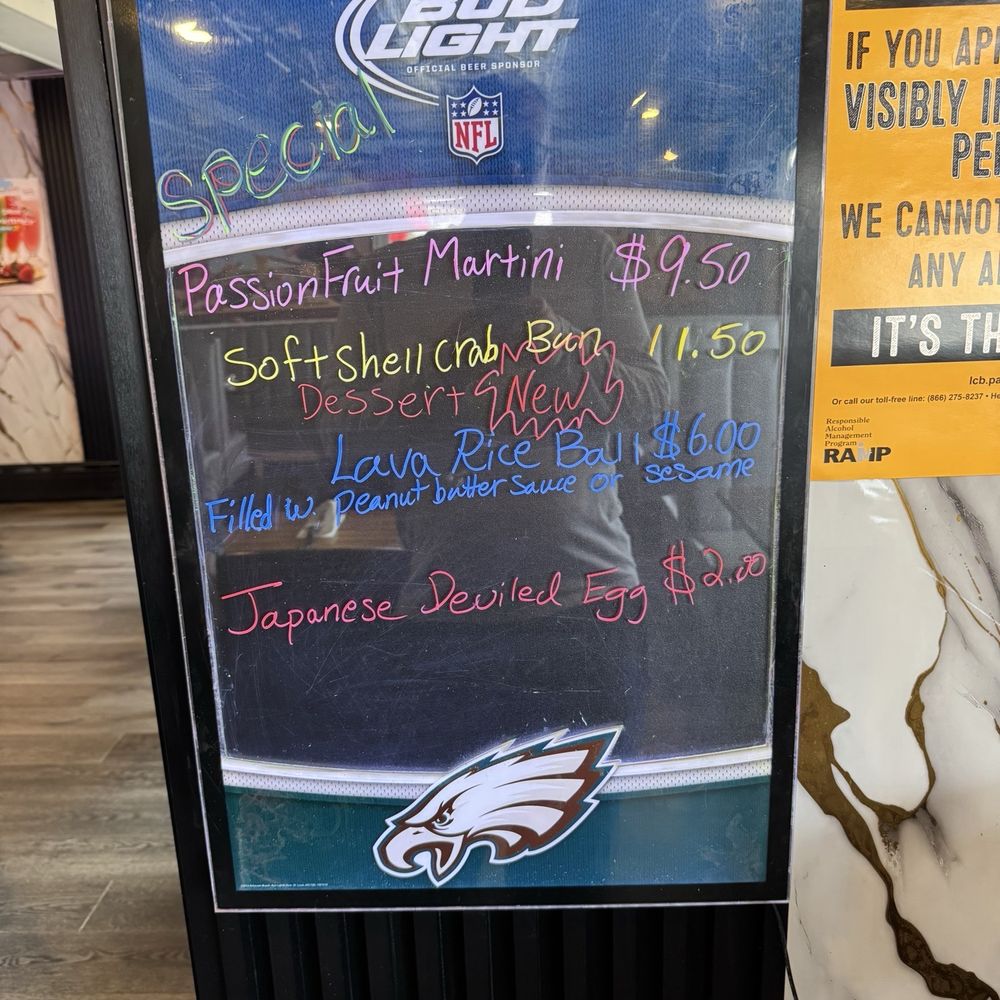 BUD
LIGHT
OFFICIAL BEER SPONSOR
NFL
Special
Passion Fruit Martini $9.50
Soft shell crab Bun 11.50
Dessert New
Lava Rice Ball $6.00
Filled w. Peanut butter sauce or sesame
Japanese Deviled Egg $2.00
IF YOU
VISIBLY
WE CANNOT
ANY
IT'S
lcb.pa
Or call our toll-free line: (866) 275-8237 •
Responsible
Alcohol
Management
Program
RAMP